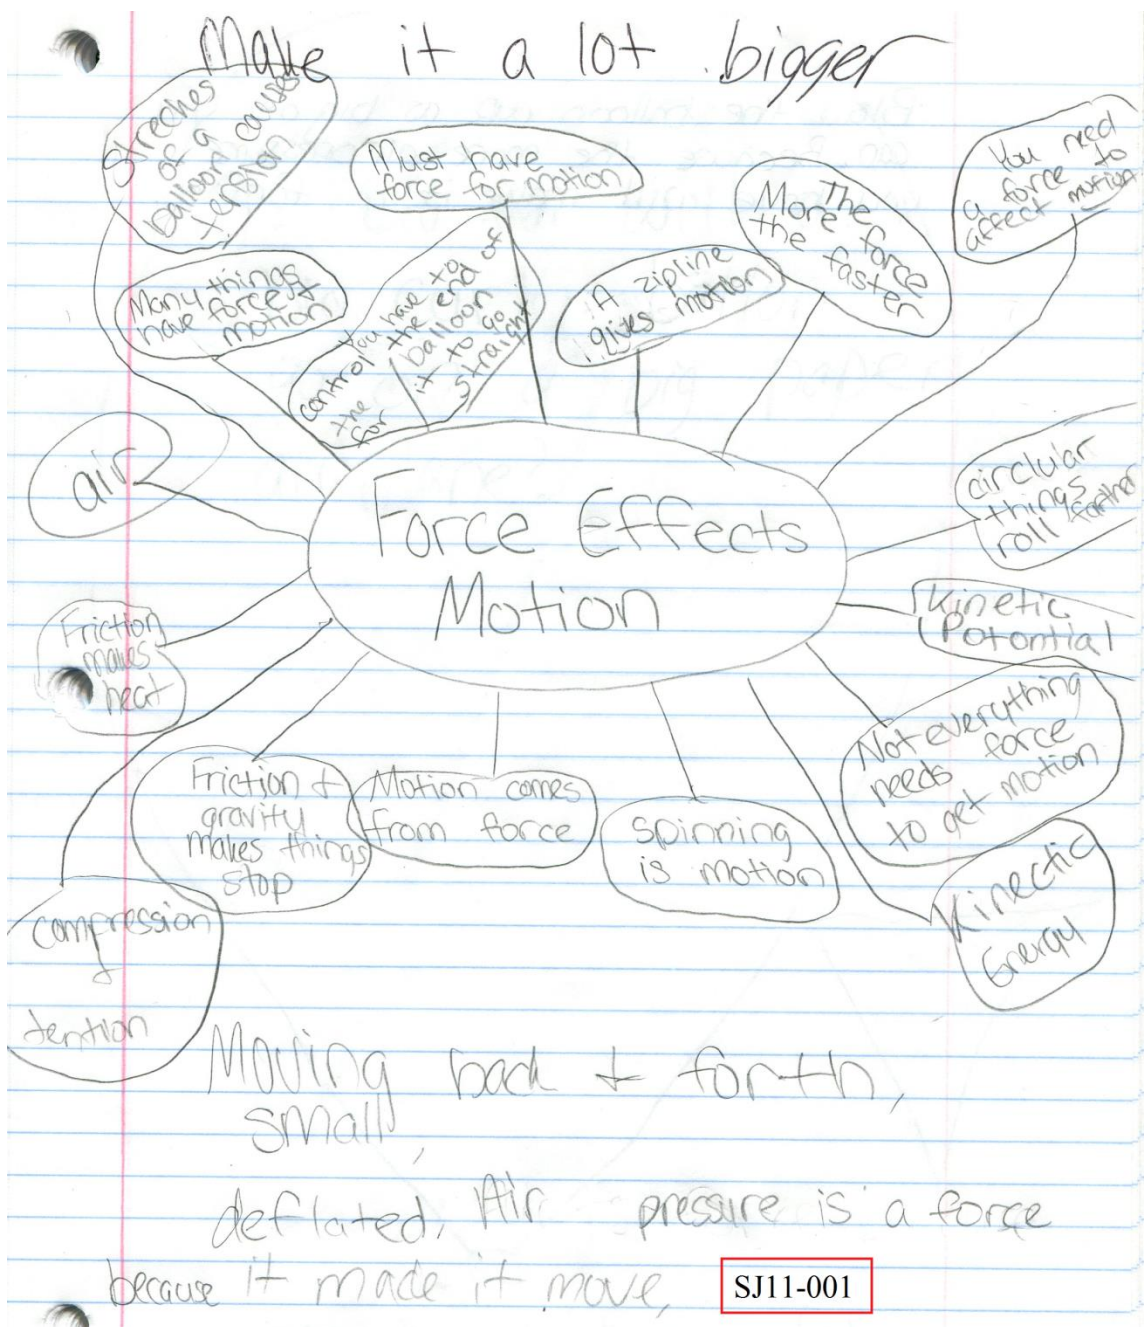 Make it a lot bigger
Streches
of a
balloon causes
tension
Must have
force for motion
The
More force
the faster
You need
a force to
affect motion
Many things
have force &
motion
You have to
control the end of
the balloon
for it to go
straight
A zipline
gives motion
air
Force Effects
Motion
circlular
things
roll farther
Kinetic
Potential
Friction
makes
heat
Not everything
needs force
to get motion
Friction &
gravity
makes things
stop
Motion comes
from force
Spinning
is motion
Kinectic
Energy
compression
&
tention
Moving back & forth,
small,
deflated. Air pressure is a force
because it made it move,
SJ11-001